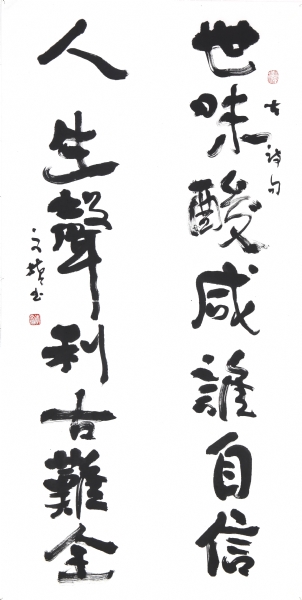 世味酸咸誰自信
古詩句
人生聲利古難全
文漪书